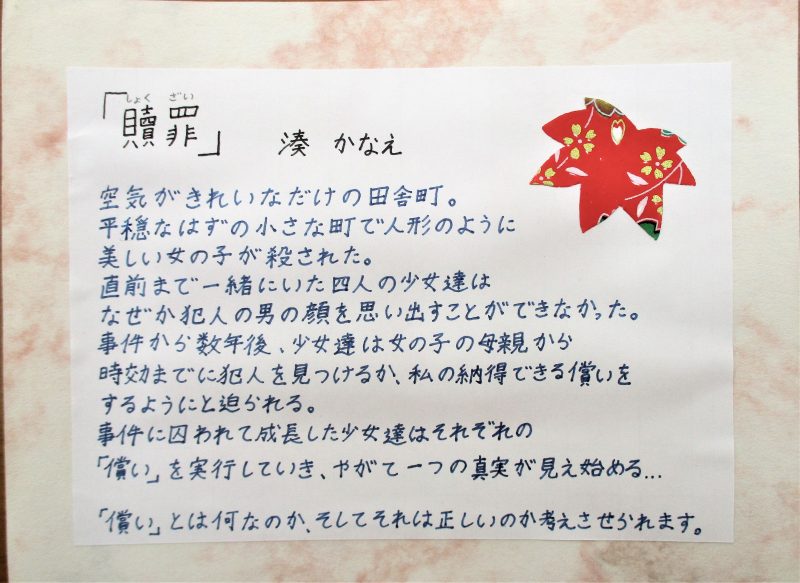 「贖罪」
しょく ざい
湊 かなえ
空気がきれいなだけの田舎町。
平穏なはずの小さな町で人形のように
美しい女の子が殺された。
直前まで一緒にいた四人の少女達は
なぜか犯人の男の顔を思い出すことができなかった。
事件から数年後、少女達は女の子の母親から
時効までに犯人を見つけるか、私の納得できる償いを
するようにと迫られる。
事件に囚われて成長した少女達はそれぞれの
「償い」を実行していき、やがて一つの真実が見え始める…
「償い」とは何なのか、そしてそれは正しいのか考えさせられます。